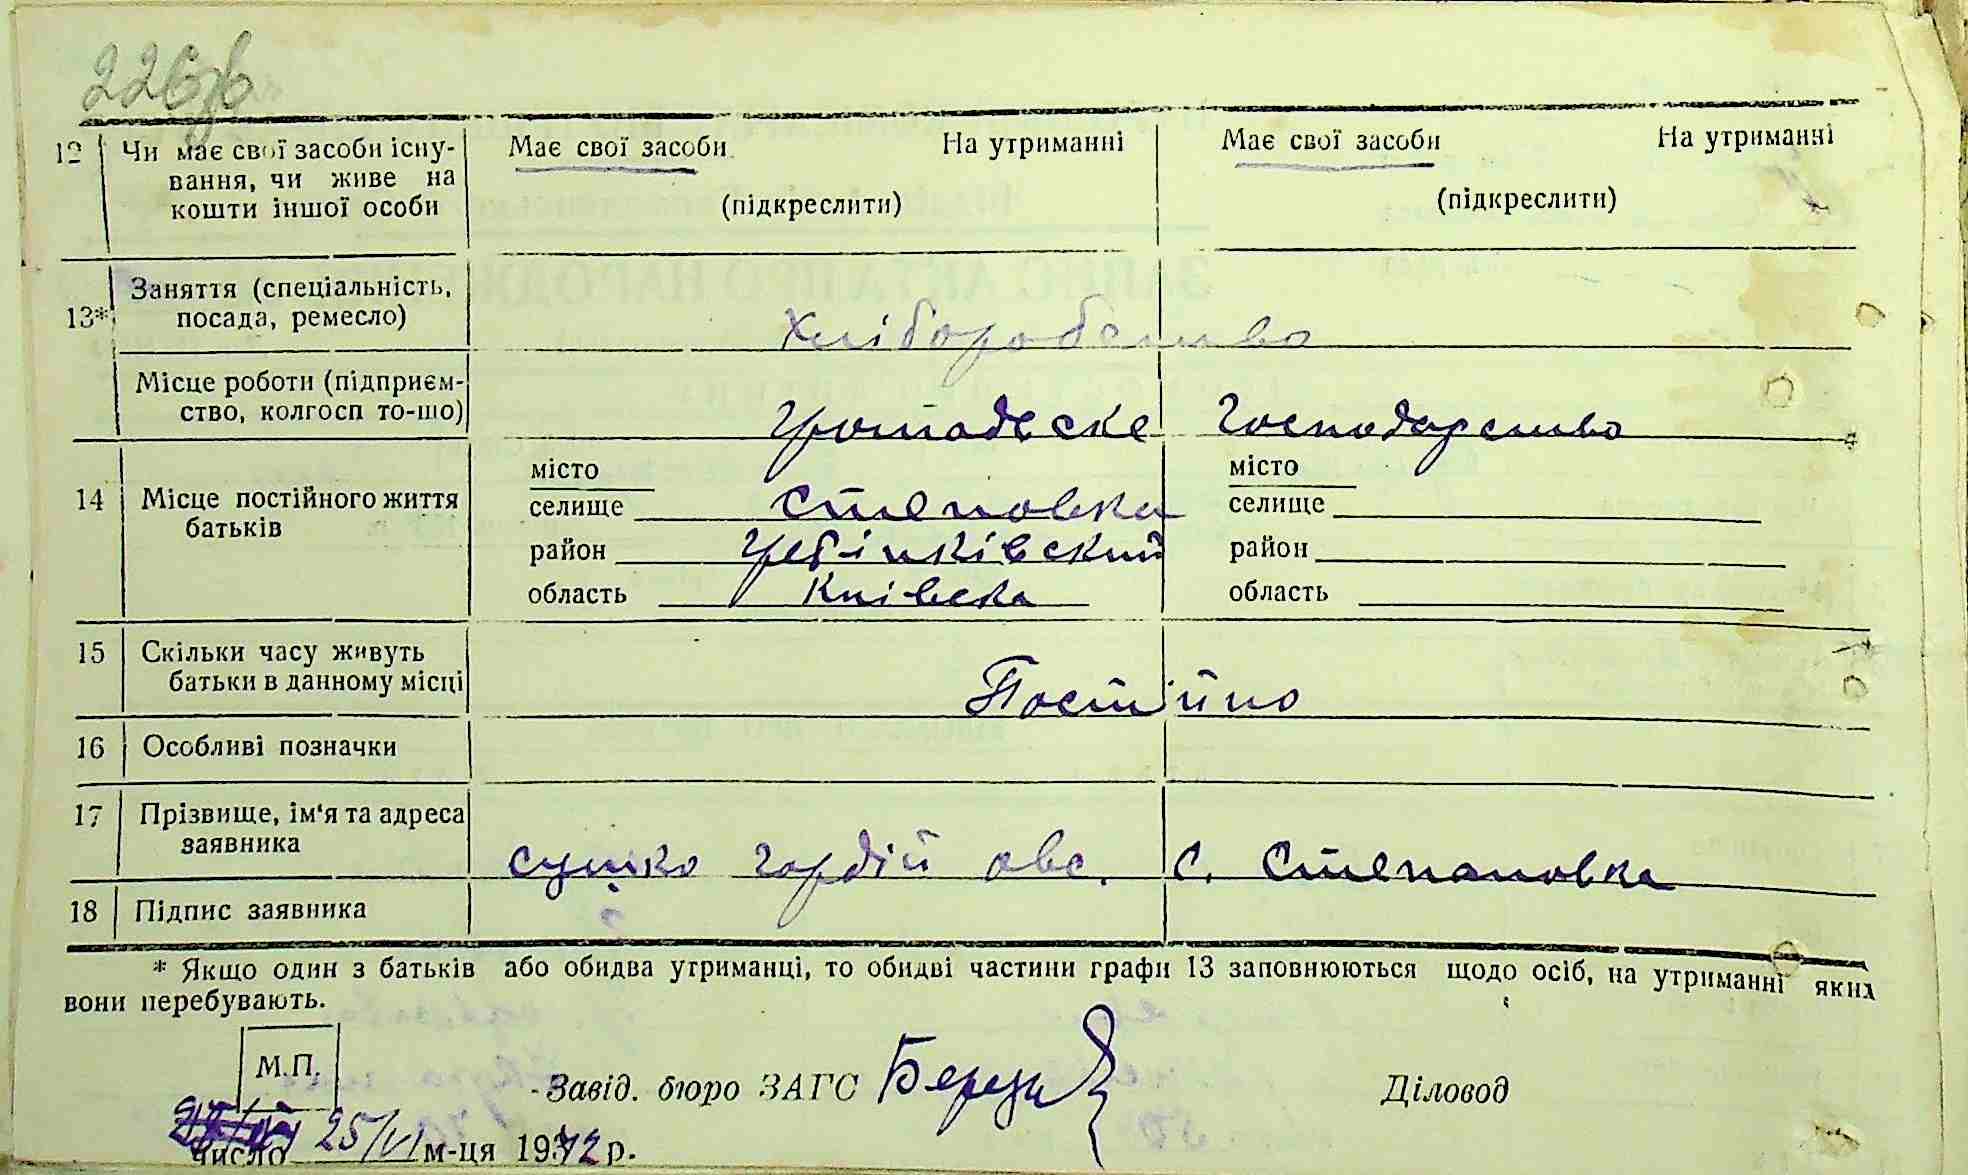 226зв
12 Чи має свої засоби існу- Має свої засоби На утриманні Має свої засоби На утриманні
вання, чи живе на
кошти іншої особи (підкреслити) (підкреслити)
13* Заняття (спеціальність,
посада, ремесло) Хліборобство
Місце роботи (підприєм-
ство, колгосп то-що) Громадське Господарство
місто місто
14 Місце постійного життя селище Степановка селище
батьків
район Гребінківский район
область Київска область
15 Скільки часу живуть
батьки в данному місці Постійно
16 Особливі позначки
17 Прізвище, ім'я та адреса
заявника Сушко Гордій овс. С. Степановка
18 Підпис заявника
* Якщо один з батьків або обидва утриманці, то обидві частини графи 13 заповнюються щодо осіб, на утриманні яких
вони перебувають.
М.П.
Завід. бюро ЗАГС Діловод
число 25/VI м-ця 1942 р.